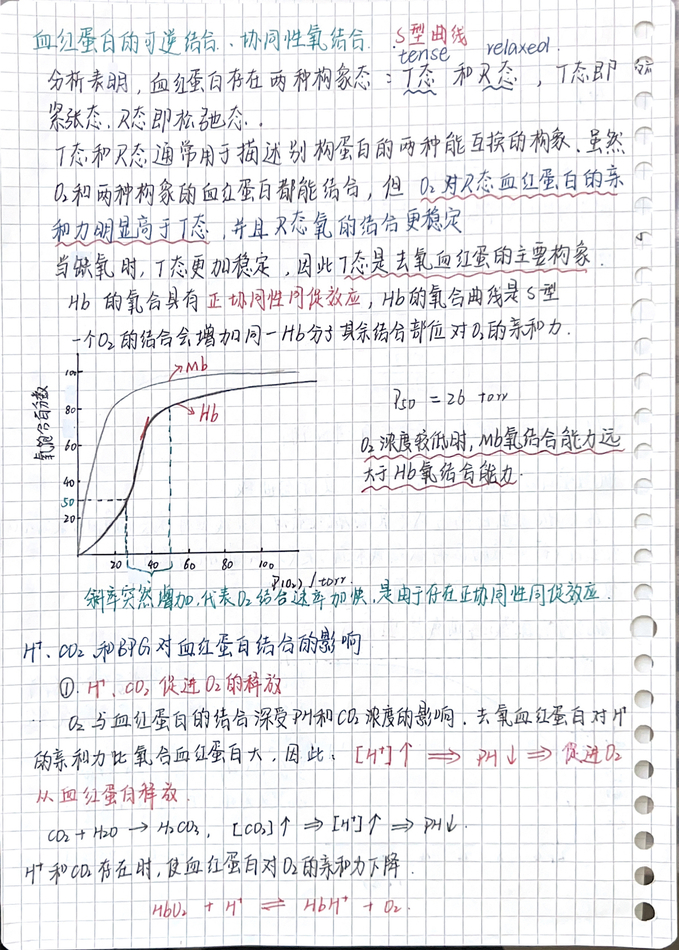 血红蛋白的可逆结合、协同性氧结合. S型曲线
tense relaxed.
分析表明,血红蛋白存在两种构象态:T态 和R态 ,T态即
紧张态.R态即松弛态..
T态和R态通常用于描述别构蛋白的两种能互换的构象.虽然
O₂和两种构象的血红蛋白都能结合,但 O₂对R态血红蛋白的亲
和力明显高于T态,并且R态氧的结合更稳定
当缺氧时,T态更加稳定,因此T态是去氧血红蛋的主要构象.
Hb 的氧合具有正协同性同促效应,Hb的氧合曲线是S型
一个O₂的结合会增加同一Hb分子其余结合部位对O₂的亲和力.
氧饱合百分数
100
80
60
40
50
20
Mb
Hb
20 40 60 80 100
P(O₂)/torr.
P50 = 26 torr
O₂浓度较低时,Mb氧结合能力远
大于Hb氧结合能力.
斜率突然增加,代表O₂结合速率加快,是由于存在正协同性同促效应.
H⁺、CO₂和BPG对血红蛋白结合的影响
①.H⁺、CO₂促进O₂的释放
O₂与血红蛋白的结合深受PH和CO₂浓度的影响.去氧血红蛋白对H⁺
的亲和力比氧合血红蛋白大,因此:[H⁺]↑ ⇒ PH↓ ⇒ 促进O₂
从血红蛋白释放.
CO₂+H₂O → H₂CO₃, [CO₂]↑ ⇒ [H⁺]↑ ⇒ PH↓.
H⁺和CO₂存在时,使血红蛋白对O₂的亲和力下降.
HbO₂ + H⁺ ⇌ HbH⁺ + O₂.